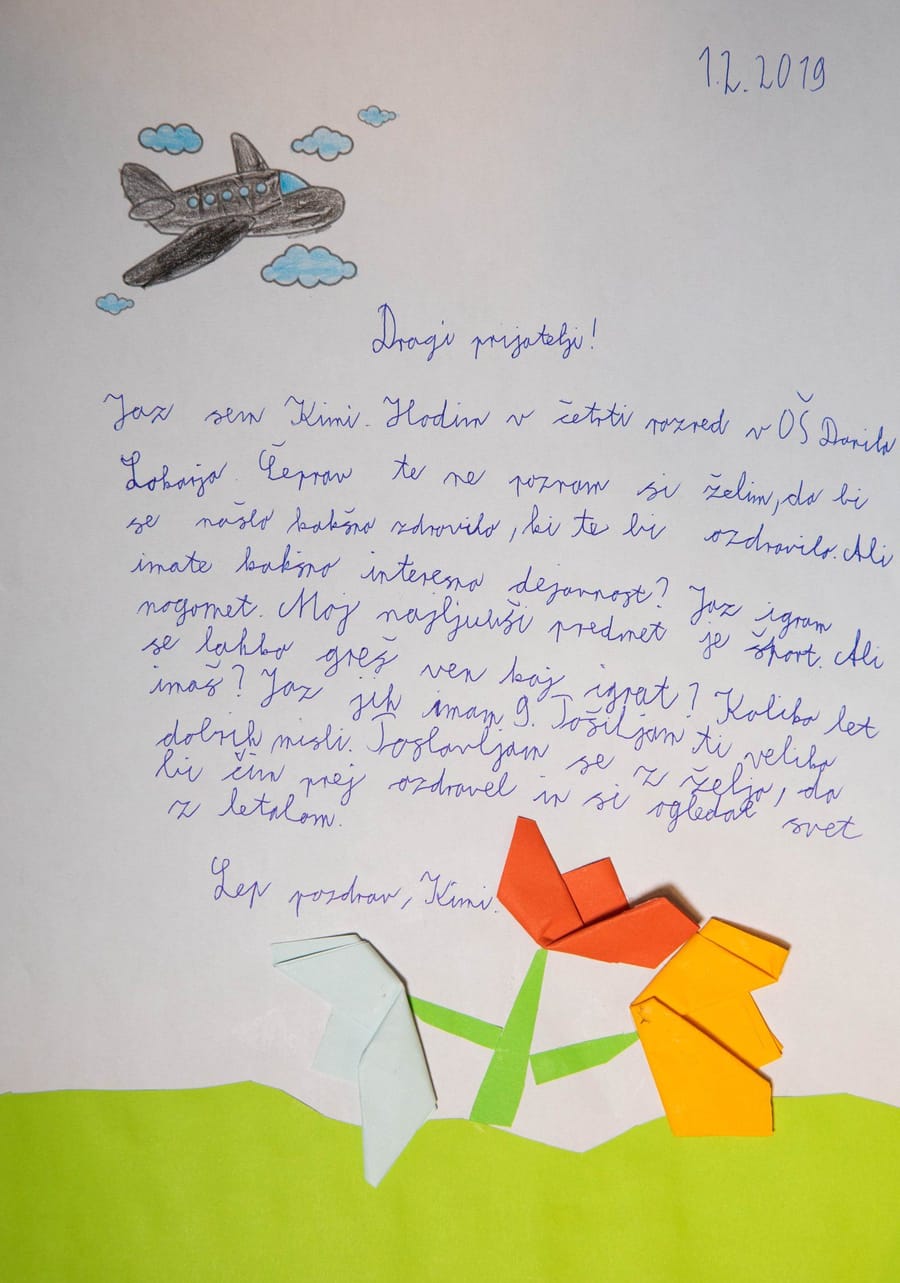 1.2.2019
Dragi prijatelji!
Jaz sem Kimi. Hodim v četrti razred v OŠ Danila
Lokarja. Čeprav te ne poznam si želim, da bi
se našlo kakšno zdravilo, ki te bi ozdravilo. Ali
imate kakšno interesno dejavnost? Jaz igram
nogomet. Moj najljubši predmet je šport. Ali
se lahko greš ven kaj igrat? Koliko let
imaš? Jaz jih imam 9. Pošiljam ti veliko
dobrih misli. Poslavljam se z željo, da
bi čim prej ozdravel in si ogledal svet
z letalom.
Lep pozdrav, Kimi.